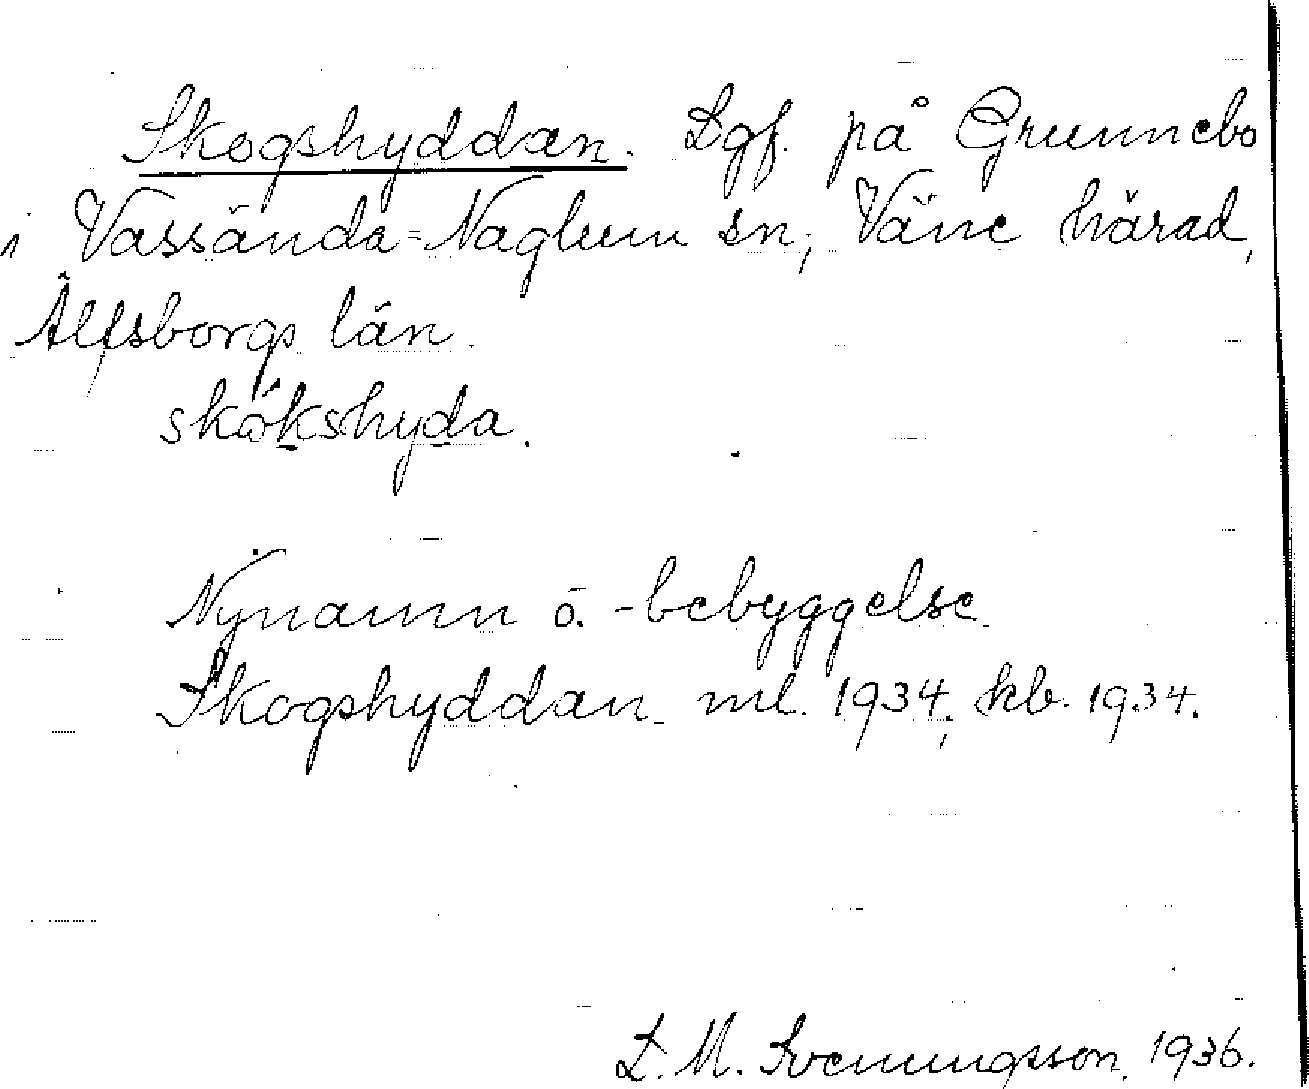 Skogshyddan. Lgf. på Grunnebo
i Vassända-Naglum sn, Väne härad,
Älfsborgs län.
skôkshyda.
Nynamn o. -bebyggelse.
Skogshyddan ml. 1934, kb. 1934.
L. M. Svenungsson 1936.